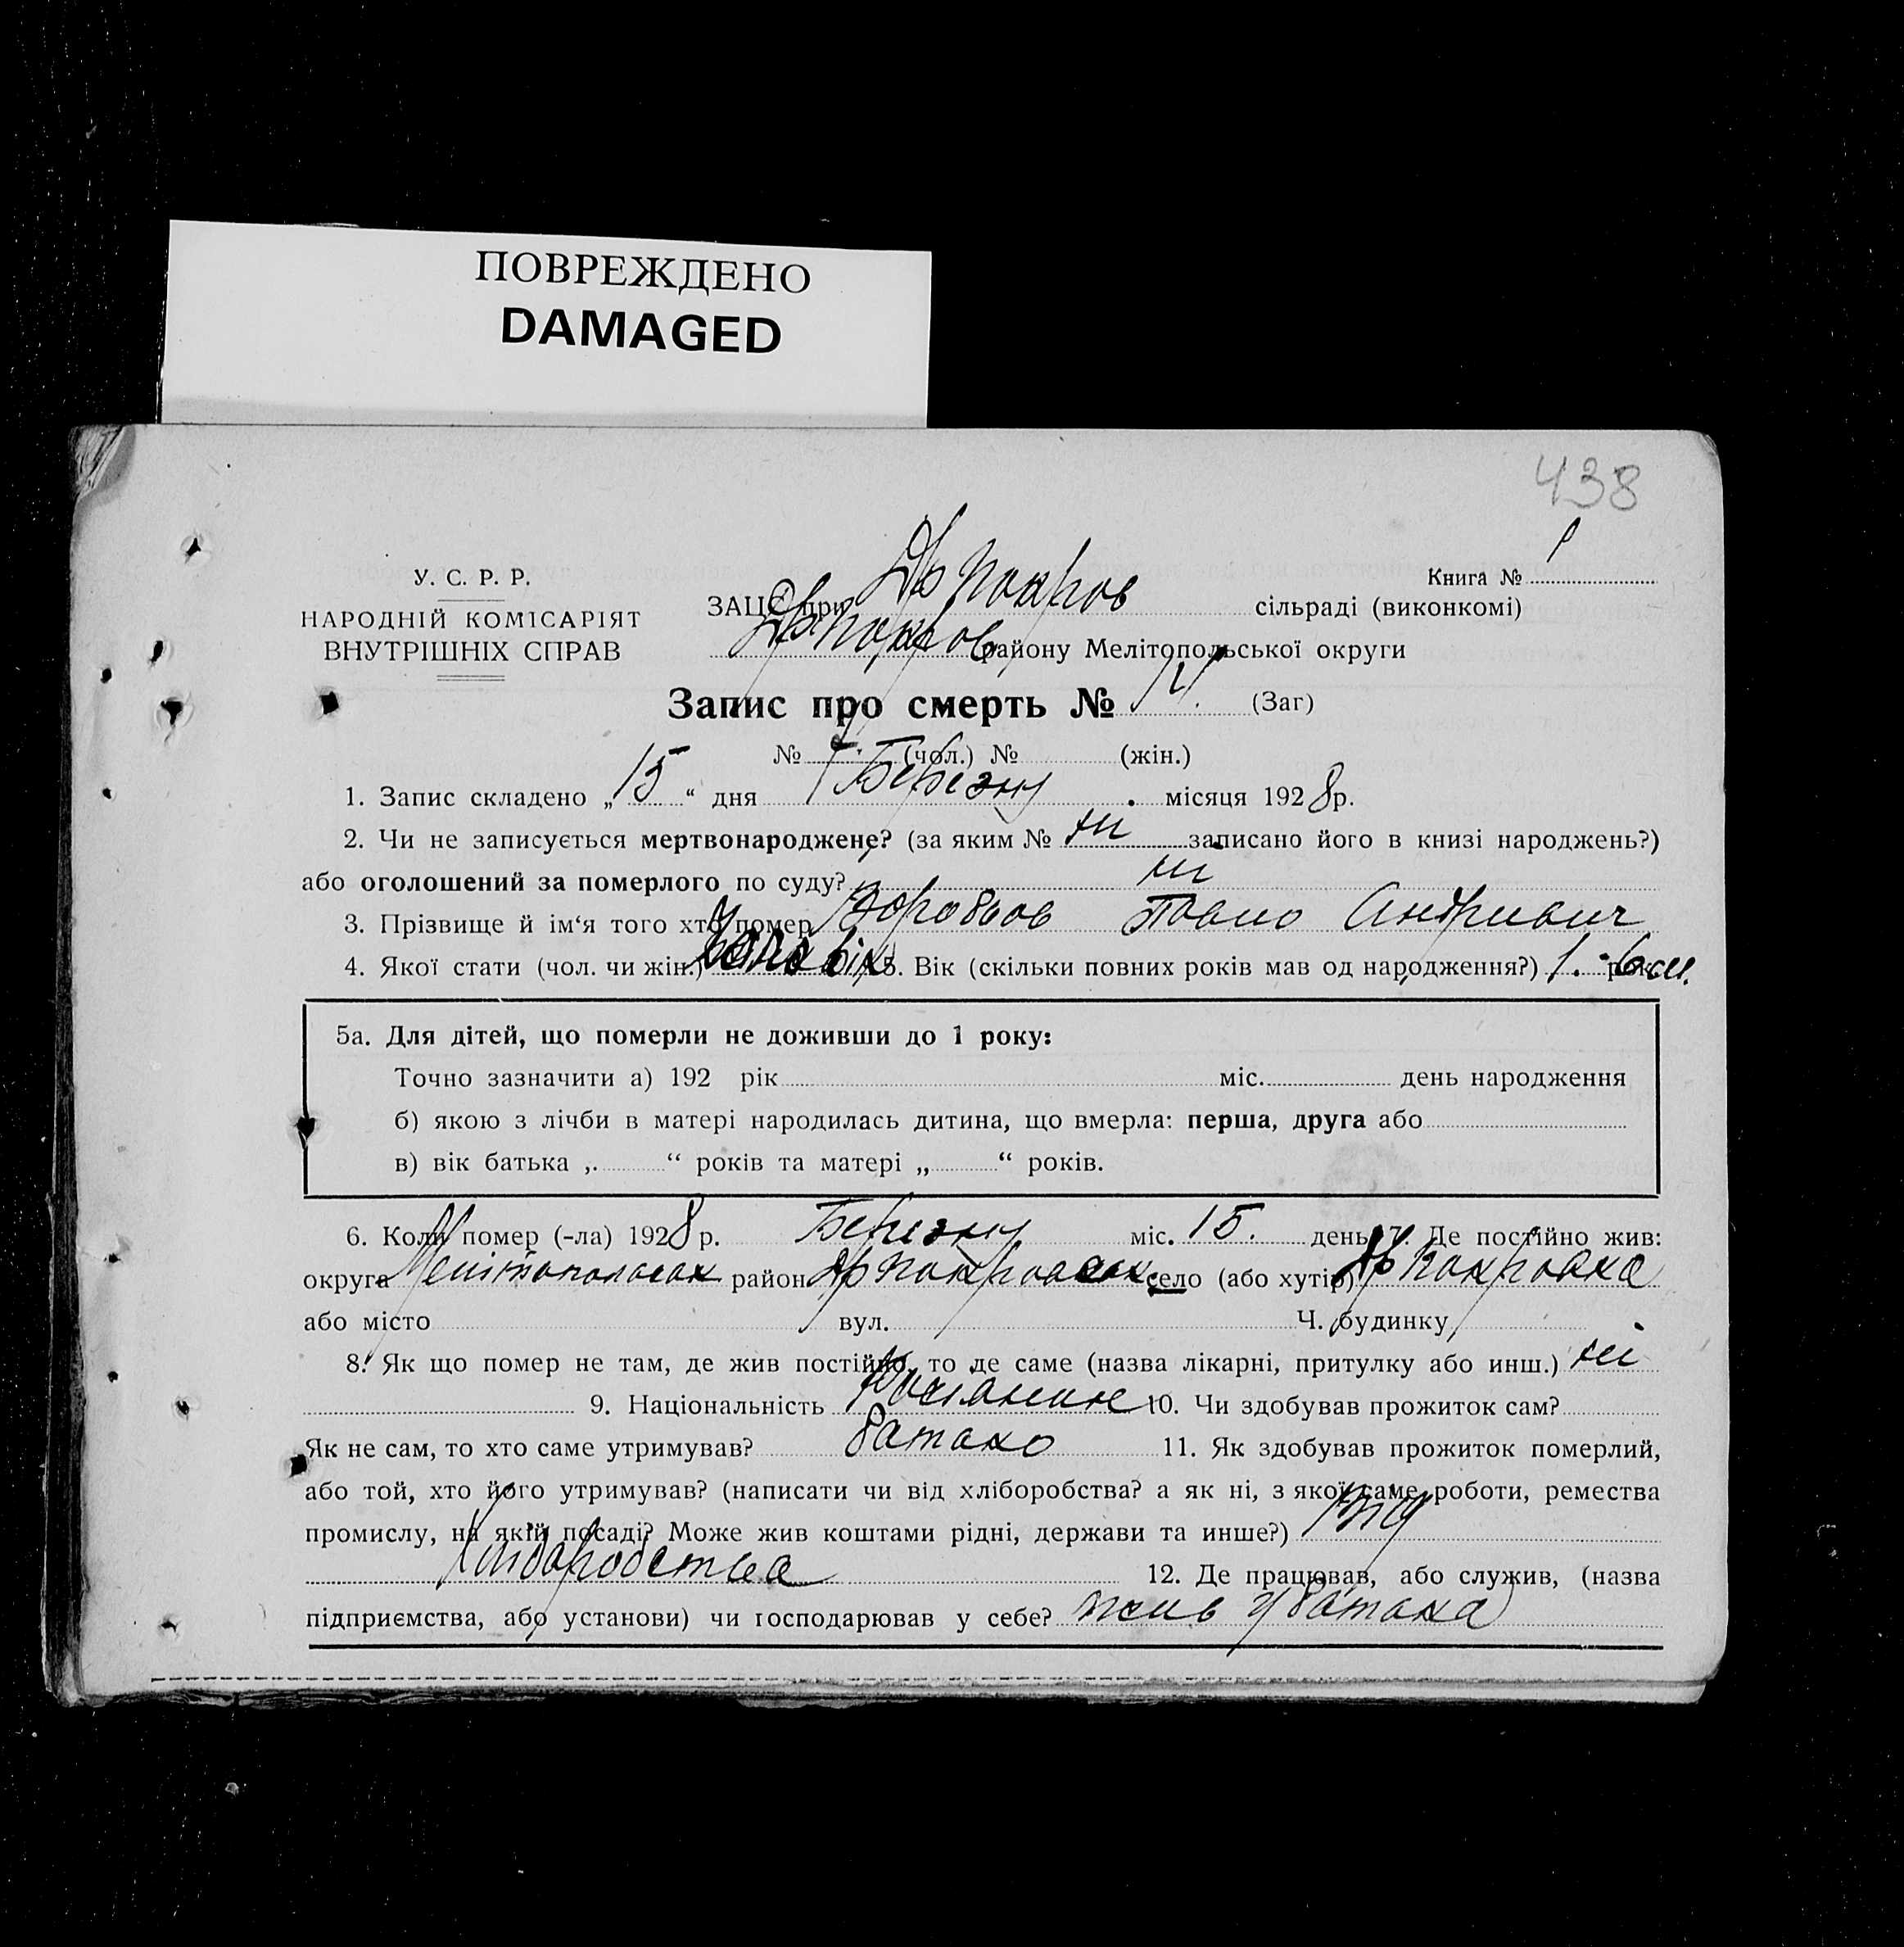 ПОВРЕЖДЕНО
DAMAGED
438
У. С. Р. Р.
НАРОДНІЙ КОМІСАРІЯТ
ВНУТРІШНІХ СПРАВ
Книга №
ЗАЦС при Др Покров сільраді (виконкомі)
Др Покров району Мелітопольської округи
Запис про смерть № (Заг)
№ (чол.) № (жін.)
1. Запис складено „15“ дня Березня місяця 1928 р.
2. Чи не записується мертвонароджене? (за яким № ні записано його в книзі народжень?)
або оголошений за померлого по суду? ні
3. Прізвище й ім‘я того хто помер Воробьов Павло Андриевич
4. Якої стати (чол. чи жін.) Чоловік 5. Вік (скільки повних років мав од народження?) 1. - 6 м.
5а. Для дітей, що померли не доживши до 1 року:
Точно зазначити а) 192 рік міс. день народження
б) якою з лічби в матері народилась дитина, що вмерла: перша, друга або
в) вік батька „ “ років та матері „ “ років.
6. Коли помер (-ла) 1928 р. Березня міс. 15. день 7. Де постійно жив:
округа Мелітопольськ район Др Покровськ село (або хутір) Др Покровка
або місто вул. Ч. будинку
8. Як що помер не там, де жив постійно, то де саме (назва лікарні, притулку або инш.) ні
9. Національність 10. Чи здобував прожиток сам?
Як не сам, то хто саме утримував? батько 11. Як здобував прожиток померлий,
або той, хто його утримував? (написати чи від хліборобства? а як ні, з якої саме роботи, ремества
промислу, на якій посаді? Може жив коштами рідні, держави та инше?) Від
Хліборобства 12. Де працював, або служив, (назва
підприємства, або установи) чи господарював у себе? жив у батька